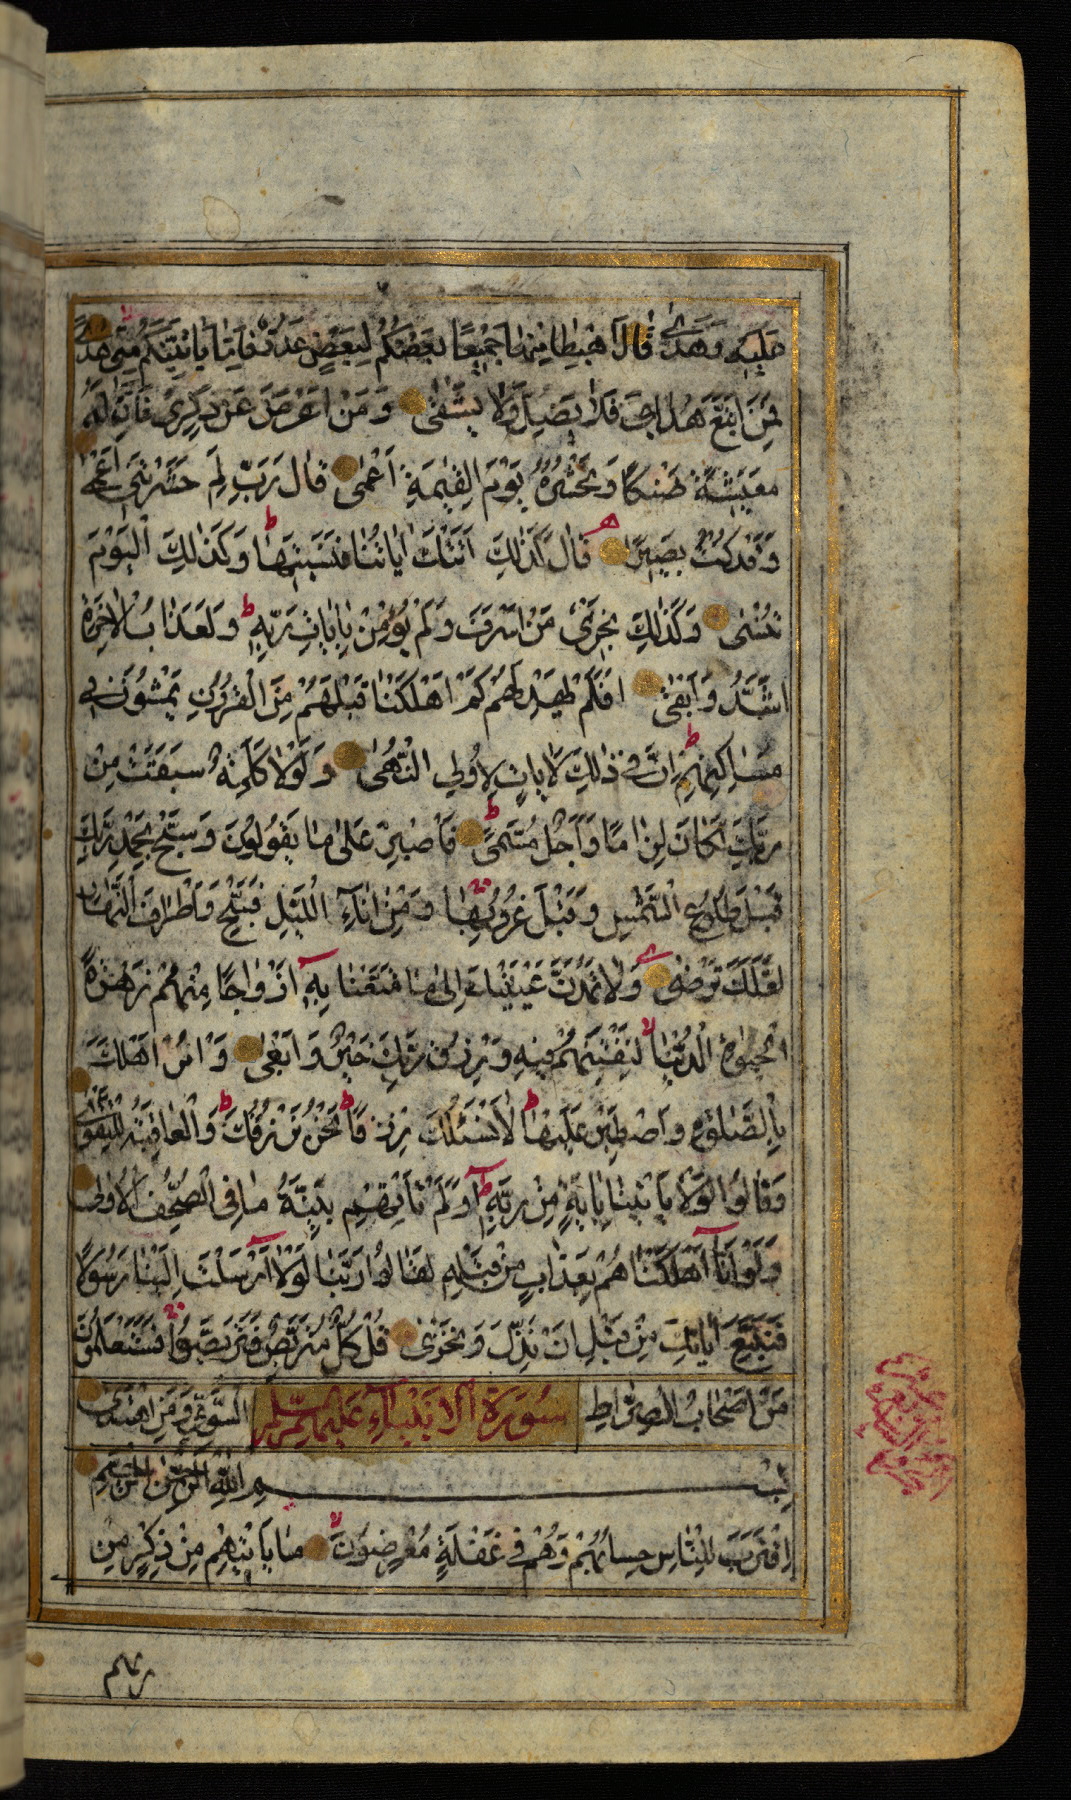 عَلَيْهِ وَهَدَىٰ قَالَ اهْبِطَا مِنْهَا جَمِيْعًا بَعْضُكُمْ لِبَعْضٍ عَدُوٌّ فَاِمَّا يَاْتِيَنَّكُمْ مِنِّى هُدًى
فَمَنِ اتَّبَعَ هُدَاىَ فَلَا يَضِلُّ وَلَا يَشْقٰى وَمَنْ اَعْرَضَ عَنْ ذِكْرِىْ فَاِنَّ لَهُ
مَعِيْشَةً ضَنْكًا وَنَحْشُرُهُ يَوْمَ الْقِيٰمَةِ اَعْمٰى قَالَ رَبِّ لِمَ حَشَرْتَنِى اَعْمٰى
وَقَدْ كُنْتُ بَصِيْرًا قَالَ كَذٰلِكَ اَتَتْكَ اٰيَاتُنَا فَنَسِيْتَهَا وَكَذٰلِكَ الْيَوْمَ
تُنْسٰى وَكَذٰلِكَ نَجْزِىْ مَنْ اَسْرَفَ وَلَمْ يُؤْمِنْ بِاٰيَاتِ رَبِّهٖ وَلَعَذَابُ الْاٰخِرَةِ
اَشَدُّ وَاَبْقٰى اَفَلَمْ يَهْدِ لَهُمْ كَمْ اَهْلَكْنَا قَبْلَهُمْ مِنَ الْقُرُوْنِ يَمْشُوْنَ فِى
مَسَاكِنِهِمْ اِنَّ فِى ذٰلِكَ لَاٰيَاتٍ لِاُولِى النُّهٰى وَلَوْلَا كَلِمَةٌ سَبَقَتْ مِنْ
رَبِّكَ لَكَانَ لِزَامًا وَاَجَلٌ مُسَمًّى فَاصْبِرْ عَلٰى مَا يَقُوْلُوْنَ وَسَبِّحْ بِحَمْدِ رَبِّكَ
قَبْلَ طُلُوْعِ الشَّمْسِ وَقَبْلَ غُرُوْبِهَا وَمِنْ اٰنَآءِ اللَّيْلِ فَسَبِّحْ وَاَطْرَافَ النَّهَارِ
لَعَلَّكَ تَرْضٰى وَلَا تَمُدَّنَّ عَيْنَيْكَ اِلٰى مَا مَتَّعْنَا بِهٖ اَزْوَاجًا مِنْهُمْ زَهْرَةَ
الْحَيٰوةِ الدُّنْيَا لِنَفْتِنَهُمْ فِيْهِ وَرِزْقُ رَبِّكَ خَيْرٌ وَاَبْقٰى وَاْمُرْ اَهْلَكَ
بِالصَّلٰوةِ وَاصْطَبِرْ عَلَيْهَا لَا نَسْئَلُكَ رِزْقًا نَحْنُ نَرْزُقُكَ وَالْعَاقِبَةُ لِلتَّقْوٰى
وَقَالُوْا لَوْلَا يَاْتِيْنَا بِاٰيَةٍ مِنْ رَبِّهٖ اَوَلَمْ تَاْتِهِمْ بَيِّنَةُ مَا فِى الصُّحُفِ الْاُوْلٰى
وَلَوْ اَنَّا اَهْلَكْنَاهُمْ بِعَذَابٍ مِنْ قَبْلِهٖ لَقَالُوْا رَبَّنَا لَوْلَا اَرْسَلْتَ اِلَيْنَا رَسُوْلًا
فَنَتَّبِعَ اٰيَاتِكَ مِنْ قَبْلِ اَنْ نَذِلَّ وَنَخْزٰى قُلْ كُلٌّ مُتَرَبِّصٌ فَتَرَبَّصُوْا فَسَتَعْلَمُوْنَ
مَنْ اَصْحَابُ الصِّرَاطِ السَّوِىِّ وَمَنِ اهْتَدٰى
سُوْرَةُ الْاَنْبِيَآءِ عَلَيْهِمُ السَّلَامُ
بِسْمِ اللّٰهِ الرَّحْمٰنِ الرَّحِيْمِ
اِقْتَرَبَ لِلنَّاسِ حِسَابُهُمْ وَهُمْ فِى غَفْلَةٍ مُعْرِضُوْنَ مَا يَاْتِيْهِمْ مِنْ ذِكْرٍ مِنْ
ربهم